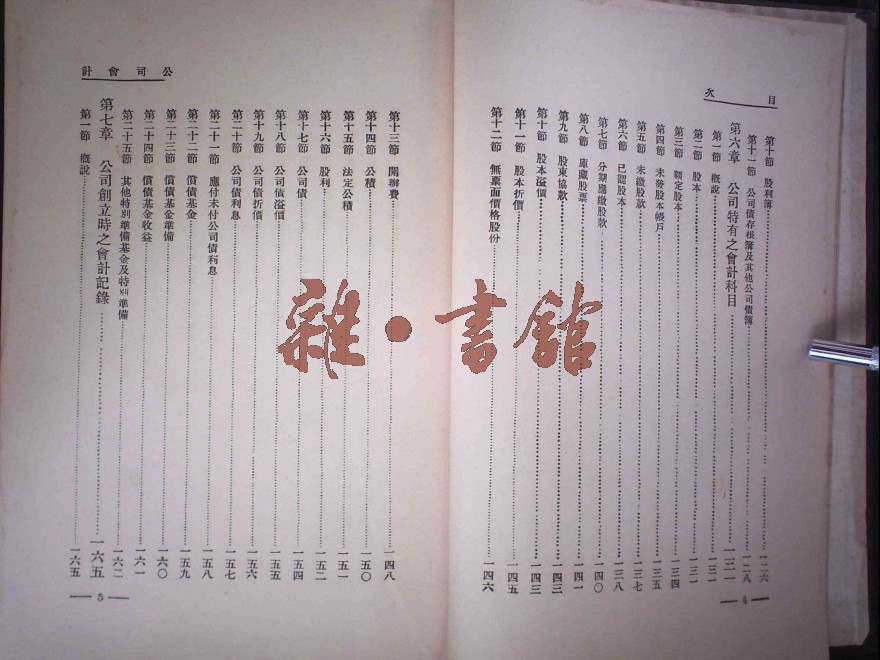 目次
第十節 股利簿 一二六
第十一節 公司債存根簿及其他公司債簿 一二八
第六章 公司特有之會計科目 一三一
第一節 概說 一三一
第二節 股本 一三一
第三節 額定股本 一三四
第四節 未發股本帳戶 一三五
第五節 未繳股款 一三七
第六節 已認股本 一三八
第七節 分期應繳股款 一四〇
第八節 庫藏股票 一四一
第九節 股東協款 一四三
第十節 股本溢價 一四三
第十一節 股本折價 一四五
第十二節 無票面價格股份 一四六
4
公司會計
第十三節 開辦費 一四八
第十四節 公積 一五〇
第十五節 法定公積 一五一
第十六節 股利 一五二
第十七節 公司債 一五四
第十八節 公司債溢價 一五五
第十九節 公司債折價 一五六
第二十節 公司債利息 一五七
第二十一節 應付未付公司債利息 一五八
第二十二節 償債基金 一五九
第二十三節 償債基金準備 一六〇
第二十四節 償債基金收益 一六一
第二十五節 其他特別準備基金及特別準備 一六二
第七章 公司創立時之會計記錄 一六五
第一節 概說 一六五
5
雜·書館